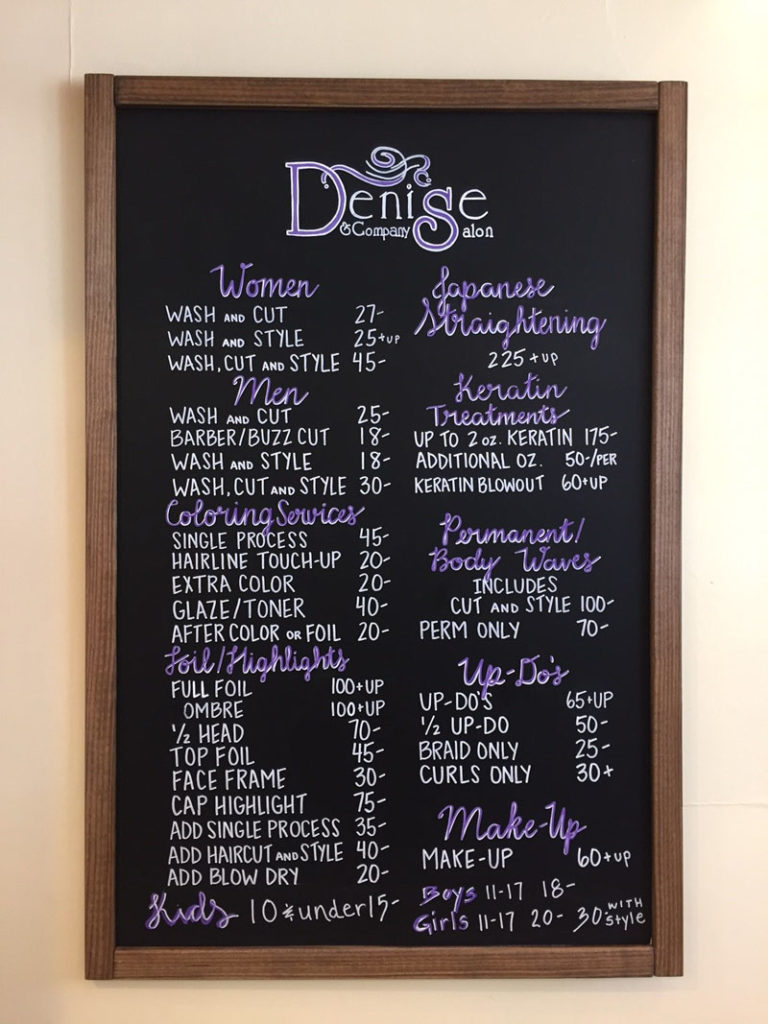 Denise
& Company Salon
Women
WASH AND CUT 27-
WASH AND STYLE 25+UP
WASH, CUT AND STYLE 45-
Men
WASH AND CUT 25-
BARBER/BUZZ CUT 18-
WASH AND STYLE 18-
WASH, CUT AND STYLE 30-
Coloring Services
SINGLE PROCESS 45-
HAIRLINE TOUCH-UP 20-
EXTRA COLOR 20-
GLAZE/TONER 40-
AFTER COLOR OR FOIL 20-
Foil/Highlights
FULL FOIL 100+UP
OMBRE 100+UP
1/2 HEAD 70-
TOP FOIL 45-
FACE FRAME 30-
CAP HIGHLIGHT 75-
ADD SINGLE PROCESS 35-
ADD HAIRCUT AND STYLE 40-
ADD BLOW DRY 20-
Kids 10 & under 15-
Japanese
Straightening
225+UP
Keratin
Treatments
UP TO 2 OZ. KERATIN 175-
ADDITIONAL OZ. 50-/PER
KERATIN BLOWOUT 60+UP
Permanent/
Body Waves
INCLUDES
CUT AND STYLE 100-
PERM ONLY 70-
Up-Do's
UP-DO'S 65+UP
1/2 UP-DO 50-
BRAID ONLY 25-
CURLS ONLY 30+
Make-Up
MAKE-UP 60+UP
Boys 11-17 18-
Girls 11-17 20- 30 WITH style